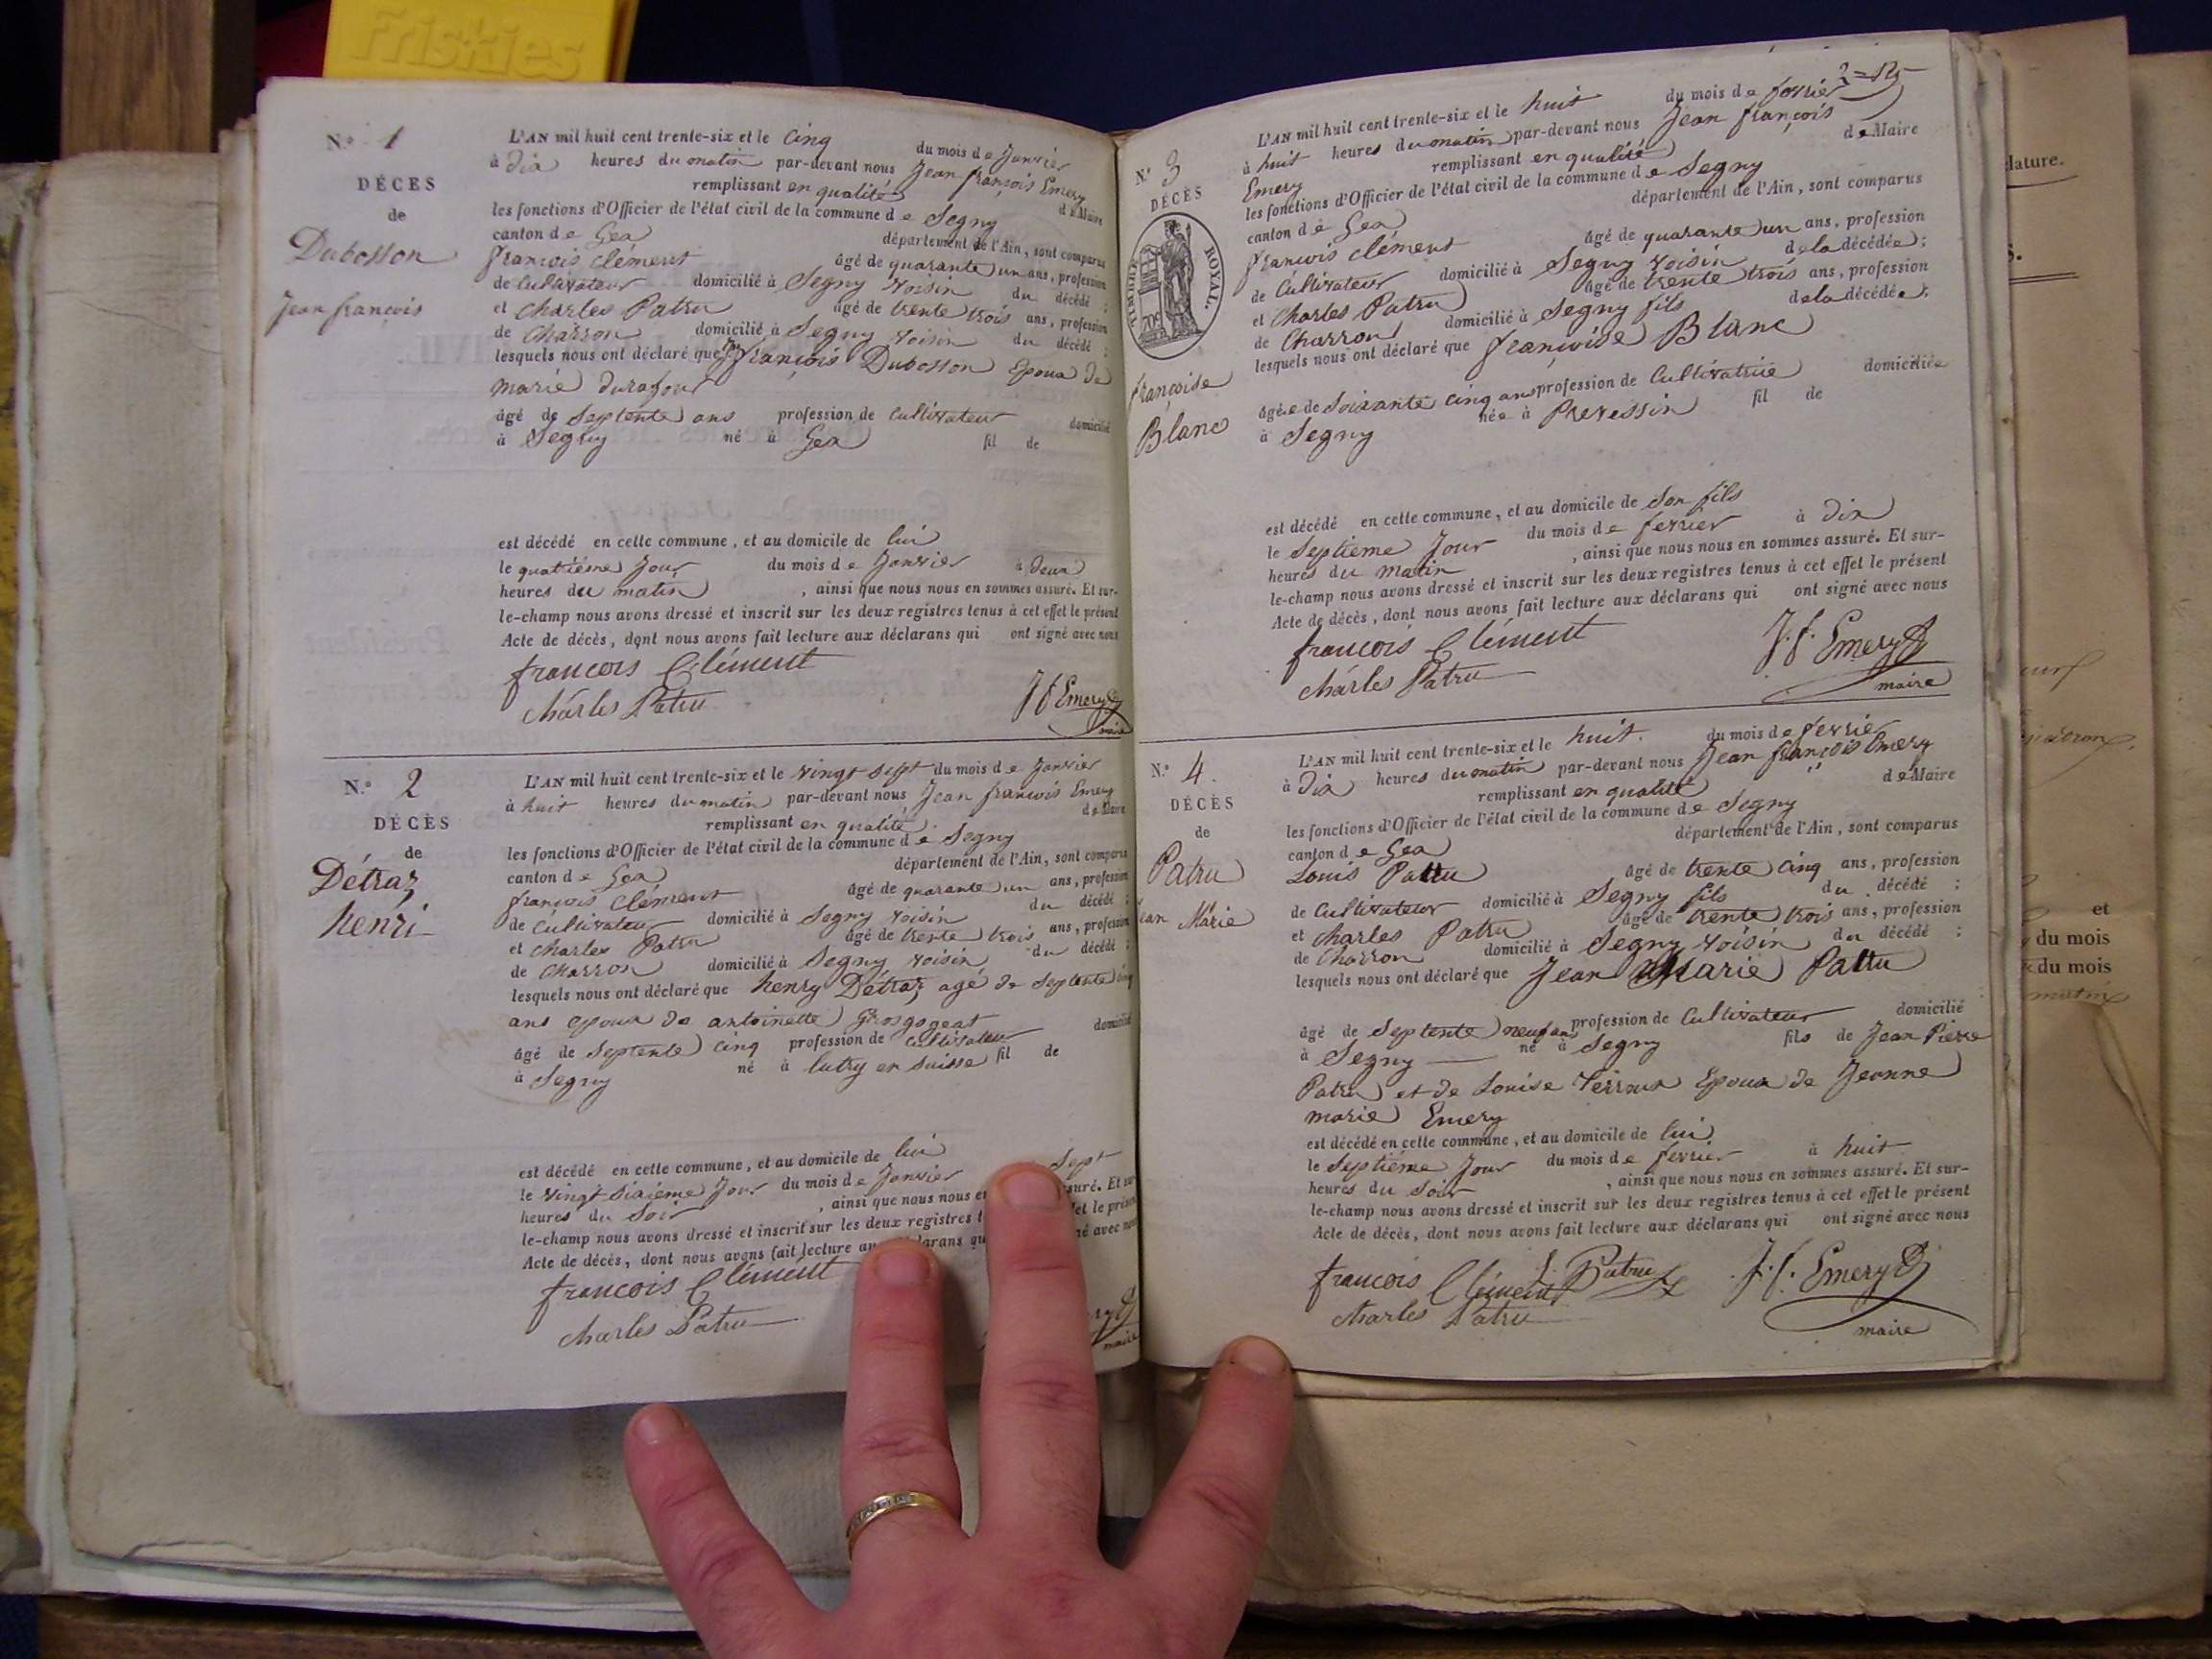 Friskies
N.° 1
DÉCES
de
Dubosson
Jean françois
L'AN mil huit cent trente-six et le Cinq du mois de Janvier
à dix heures du matin par-devant nous Jean françois Emery
remplissant en qualité de Maire
les fonctions d'Officier de l'état civil de la commune de Segny
canton de Gex département de l'Ain, sont comparus
françois Clément âgé de quarante un ans, profession
de Cultivateur domicilié à Segny voisin du décédé ;
et Charles Patru âgé de trente trois ans, profession
de Charron domicilié à Segny voisin du décédé ;
lesquels nous ont déclaré que françois Dubosson Epoux de
marie durafour
âgé de Septente ans profession de Cultivateur domicilié
à Segny né à Gex fil de
est décédé en cette commune, et au domicile de lui
le quatrième Jour du mois de Janvier à deux
heures du matin , ainsi que nous nous en sommes assuré. Et sur-
le-champ nous avons dressé et inscrit sur les deux registres tenus à cet effet le présent
Acte de décès, dont nous avons fait lecture aux déclarans qui ont signé avec nous
françois Clément
Charles Patru
J f Emery
maire
N.° 2
DÉCÈS
de
Détraz
henri
L'AN mil huit cent trente-six et le vingt sept du mois de Janvier
à huit heures du matin par-devant nous Jean françois Emery
remplissant en qualité de Maire
les fonctions d'Officier de l'état civil de la commune de Segny
canton de Gex département de l'Ain, sont comparus
françois Clément âgé de quarante un ans, profession
de Cultivateur domicilié à Segny voisin du décédé ;
et Charles Patru âgé de trente trois ans, profession
de Charron domicilié à Segny voisin du décédé ;
lesquels nous ont déclaré que henry Détraz agé de Septente cinq
ans epoux de antoinette Grosgogeat
âgé de Septente cinq profession de Cultivateur domicilié
à Segny né à lutry en suisse fil de
est décédé en cette commune, et au domicile de lui
le vingt Sixième Jour du mois de Janvier Sept
heures du Soir , ainsi que nous nous en assuré. Et sur
le-champ nous avons dressé et inscrit sur les deux registres effet le présent
Acte de décès, dont nous avons fait lecture aux déclarans qui signé avec nous
françois Clément
Charles Patru
maire
2=15
N.° 3
DÉCÈS
TIMBRE ROYAL.
françoise
Blanc
L'AN mil huit cent trente-six et le huit du mois de fevrier
à huit heures du matin par-devant nous Jean françois
Emery remplissant en qualité de Maire
les fonctions d'Officier de l'état civil de la commune de Segny
canton de Gex département de l'Ain, sont comparus
françois Clément âgé de quarante un ans, profession
de Cultivateur domicilié à Segny voisin de la décédée ;
et Charles Patru âgé de trente trois ans, profession
de Charron domicilié à Segny fils de la décédée ;
lesquels nous ont déclaré que françoise Blanc
âgée de Soixante cinq ans profession de Cultivatrice domiciliée
à Segny née à Prevessin fil de
est décédé en cette commune, et au domicile de Son fils
le Septième Jour du mois de fevrier à dix
heures du matin , ainsi que nous nous en sommes assuré. Et sur-
le-champ nous avons dressé et inscrit sur les deux registres tenus à cet effet le présent
Acte de décès, dont nous avons fait lecture aux déclarans qui ont signé avec nous
françois Clément
Charles Patru
J. f. Emery
maire
N.° 4
DÉCÈS
de
Patru
Jean Marie
L'AN mil huit cent trente-six et le huit du mois de fevrier
à Dix heures du matin par-devant nous Jean françois Emery
remplissant en qualité de Maire
les fonctions d'Officier de l'état civil de la commune de Segny
canton de Gex département de l'Ain, sont comparus
Louis Patru âgé de trente cinq ans, profession
de Cultivateur domicilié à Segny fils du décédé ;
et Charles Patru âgé de trente trois ans, profession
de Charron domicilié à Segny voisin du décédé ;
lesquels nous ont déclaré que Jean Marie Patru
âgé de Septente neuf ans profession de Cultivateur domicilié
à Segny né à Segny fils de Jean Pierre
Patru et de Louise Epoux de Jeanne
marie Emery
est décédé en cette commune, et au domicile de lui
le Septième Jour du mois de fevrier à huit
heures du Soir , ainsi que nous nous en sommes assuré. Et sur-
le-champ nous avons dressé et inscrit sur les deux registres tenus à cet effet le présent
Acte de décès, dont nous avons fait lecture aux déclarans qui ont signé avec nous
françois Clément L. Patru
Charles Patru
J. f. Emery
maire
et
du mois
du mois